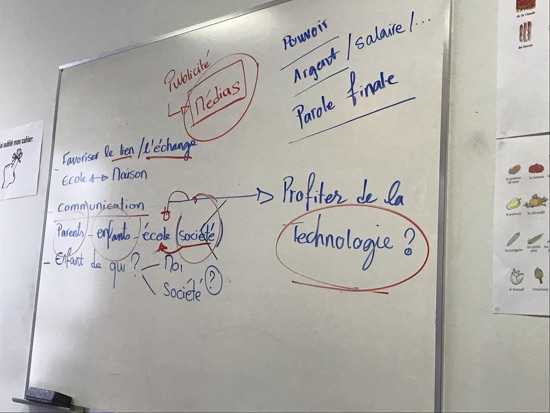 Publicité
Médias
Pouvoir
Argent/salaire/...
Parole finale
Favoriser le lien/l'échange
Ecole ↔ Maison
communication
Parents - enfants - école (société)
- Enfant de qui? - Moi
Société ?
→ Profiter de la
Technologie ?
oublié mon cahier